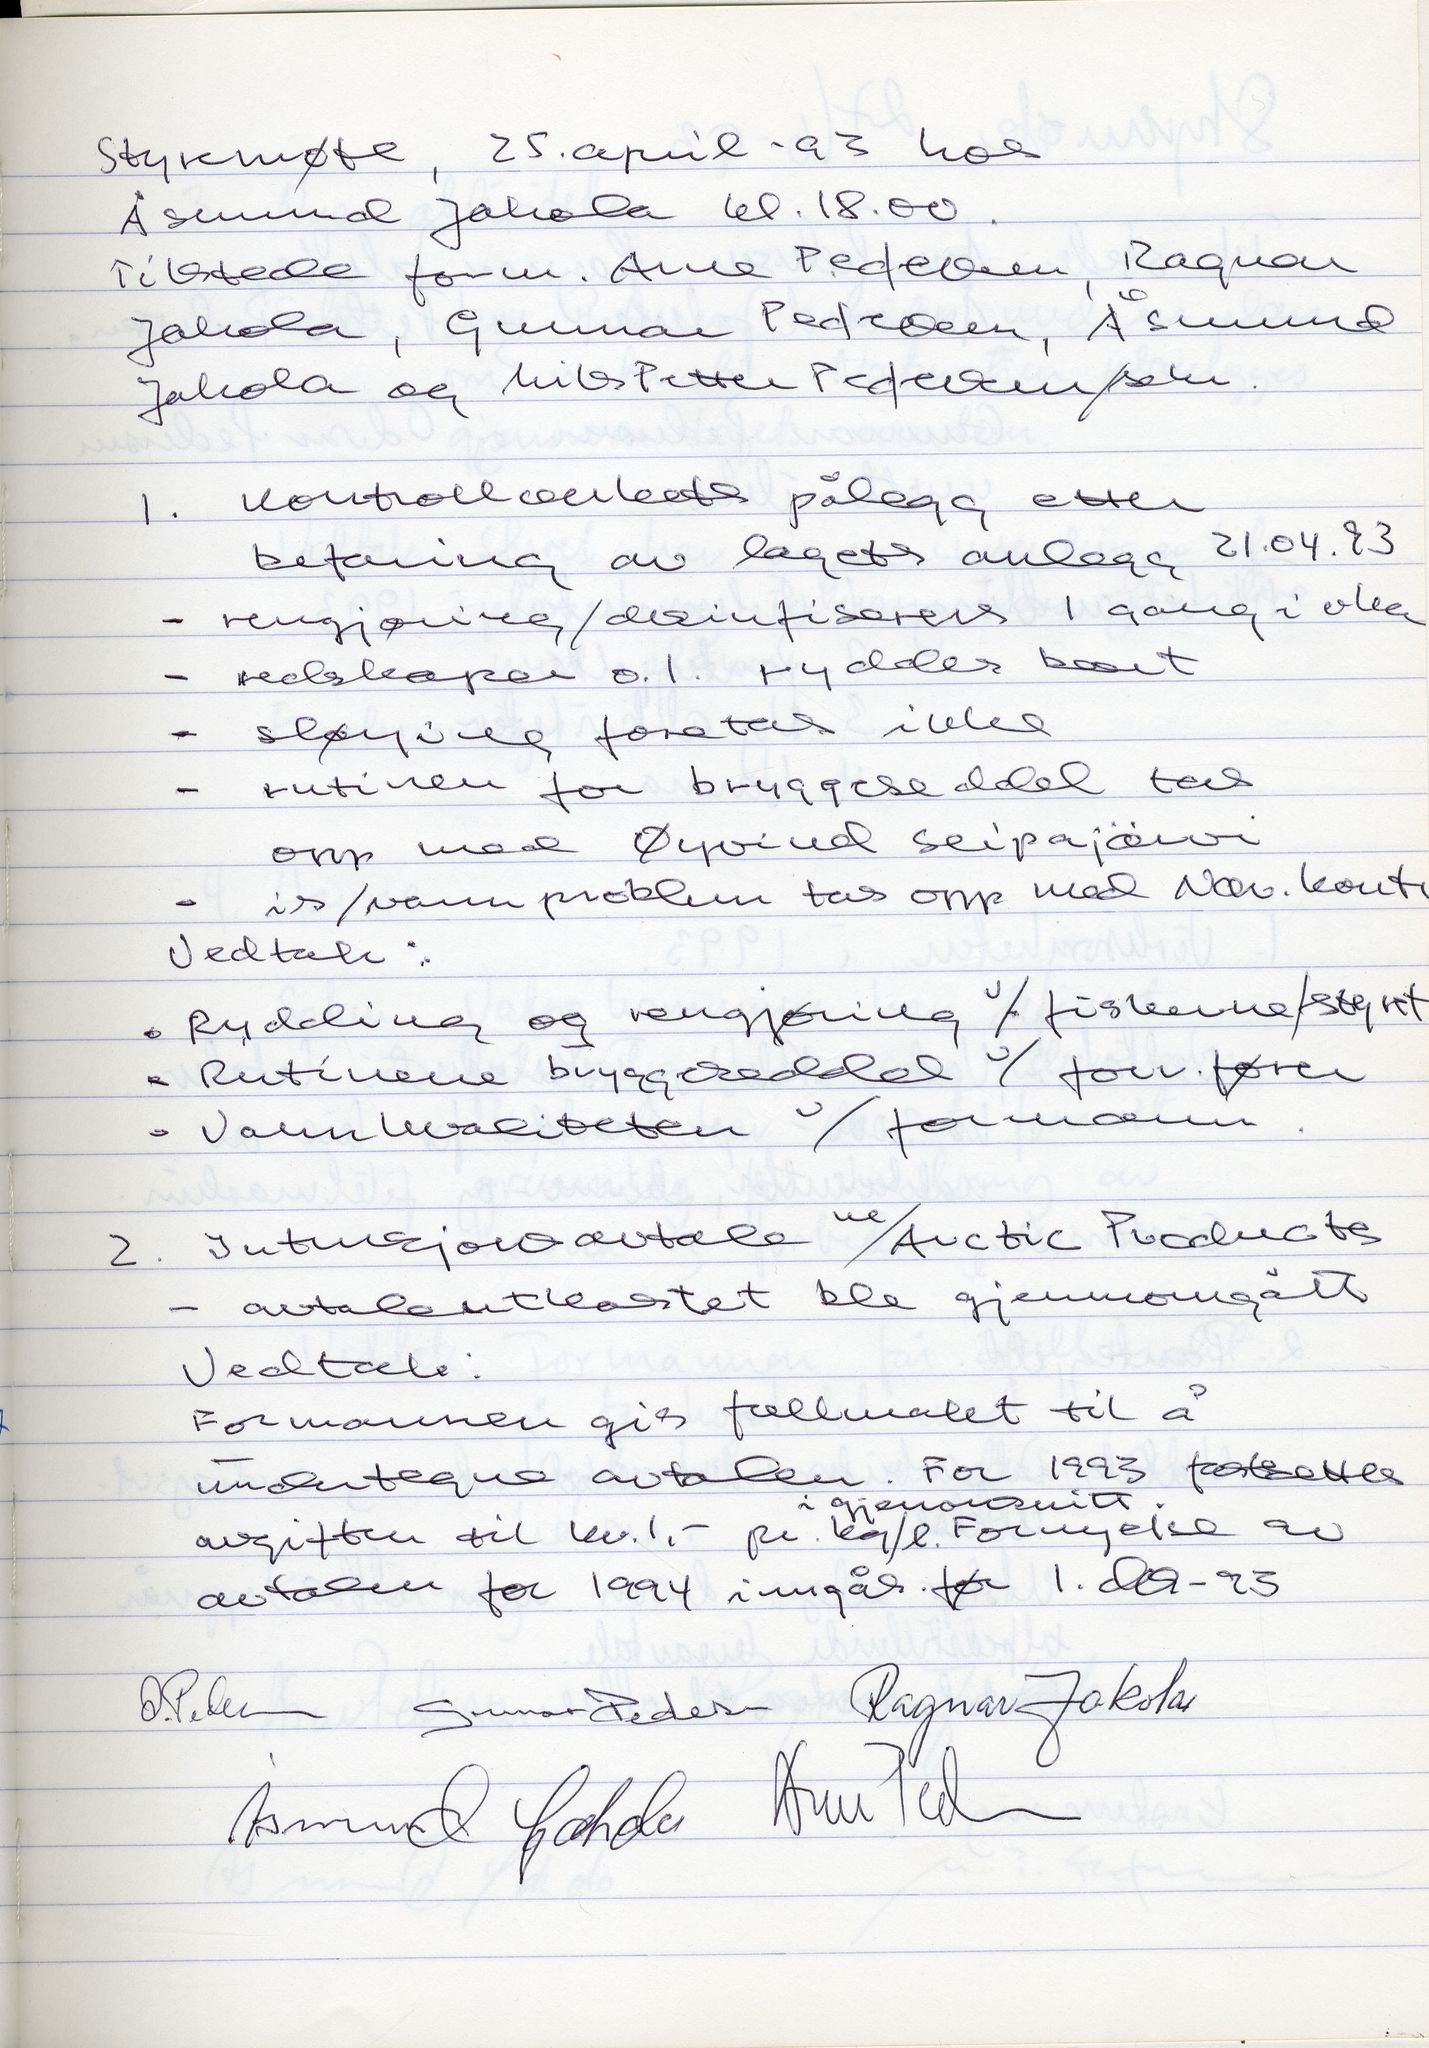 Styremøte, 25. april -93 hos
Åsmund Jakola kl. 18.00.
Tilstede form. Arne Pedersen, Ragnar
Jakola, Gunnar Pedersen, Åsmund
Jakola og Nils Petter Pedersen/sekr.
1. Kontrollverkets pålegg etter
befaring av lagets anlegg 21.04.93
- rengjøring/desinfiseres 1 gang i uka
- redskaper o.l. ryddes bort
- sløying foretas ikke
- rutinen for bryggeseddel tas
opp med Øyvind Seipäjärvi
- is/vannproblem tas opp med Næv. kont
Vedtak:
- Rydding og rengjøring v/ fiskerne/styret
- Rutinene bryggeseddel v/ forr.fører
- Vannkvaliteten v/ formann.
2. Intensjonsavtale m/Arctic Products
- avtaleutkastet ble gjennomgått
Vedtak:
Formannen gis fullmakt til å
undertegne avtalen. For 1993 fastsettes
i gjennomsnitt.
avgiften til kr. 1,- pr. kg/l. Fornyelse av
avtalen for 1994 inngås før 1. des -93
Gunnar Peders
Ragnar Jakola
Åsmund Jakola
Arne Ped